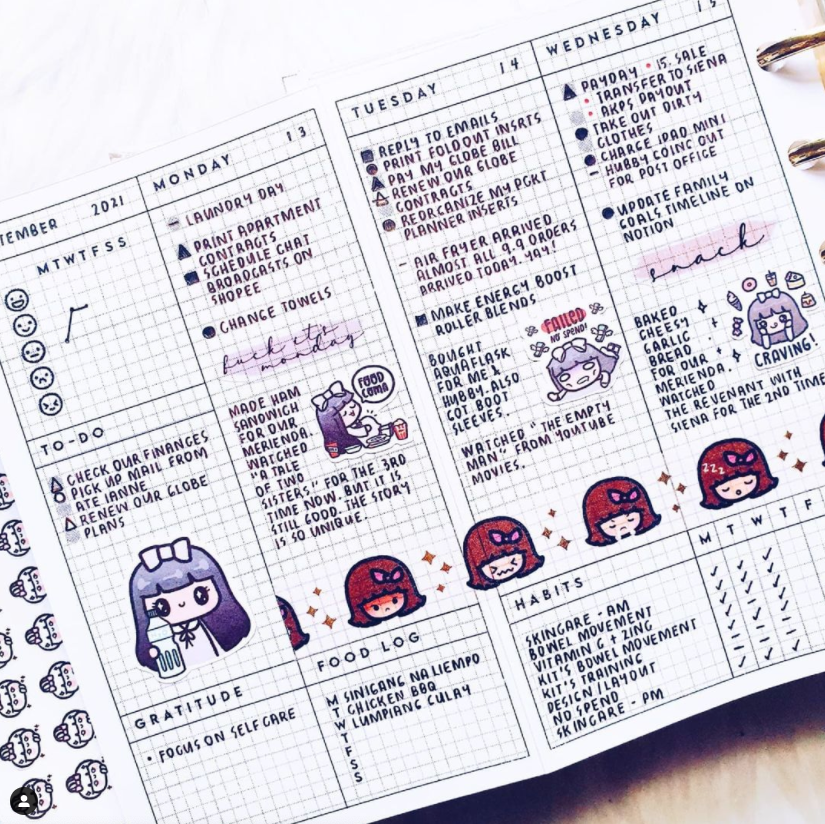 TEMBER 2021
MTWTFSS
TO-DO
CHECK OUR FINANCES
PICK UP MAIL FROM
ATE IANNE
RENEW OUR GLOBE
PLANS
GRATITUDE
• FOCUS ON SELF CARE
MONDAY 13
LAUNDRY DAY
PRINT APARTMENT
CONTRACTS
SCHEDULE CHAT
BROADCASTS ON
SHOPEE
CHANGE TOWELS
fuck it's
monday
MADE HAM
SANDWICH
FOR OUR
MERIENDA.
WATCHED
"A TALE
OF TWO
SISTERS," FOR THE 3RD
TIME NOW. BUT IT IS
STILL GOOD. THE STORY
IS SO UNIQUE.
FOOD
COMA
FOOD LOG
M SINIGANG NA LIEMPO
T CHICKEN BBQ
W LUMPIANG GULAY
T
F
S
S
TUESDAY 14
REPLY TO EMAILS
PRINT FOLDOUT INSRTS
PAY MY GLOBE BILL
RENEW OUR GLOBE
CONTRACTS
REORGANIZE MY PCKT
PLANNER INSERTS
- AIR FRYER ARRIVED
ALMOST ALL 9.9 ORDERS
ARRIVED TODAY. YAY!
MAKE ENERGY BOOST
ROLLER BLENDS
BOUGHT
AQUAFLASK
FOR ME &
HUBBY. ALSO
GOT BOOT
SLEEVES.
WATCHED "THE EMPTY
MAN" FROM YOUTUBE
MOVIES.
FAILED
NO SPEND!
WEDNESDAY 15
PAYDAY • 15. SALE
• TRANSFER TO SIENA
• AKPS PAYOUT
TAKE OUT DIRTY
CLOTHES
CHARGE IPAD MINI
- HUBBY GOING OUT
FOR POST OFFICE
UPDATE FAMILY
GOALS TIMELINE ON
NOTION
snack
BAKED
CHEESY
GARLIC
BREAD
FOR OUR
MERIENDA.
WATCHED
THE REVENANT WITH
SIENA FOR THE 2ND TIME
CRAVING!
ZZZ
HABITS M T W T F
SKINCARE - AM
BOWEL MOVEMENT
VITAMIN C + ZINC
KIT'S BOWEL MOVEMENT
KIT'S TRAINING
DESIGN / LAYOUT
NO SPEND
SKINCARE - PM